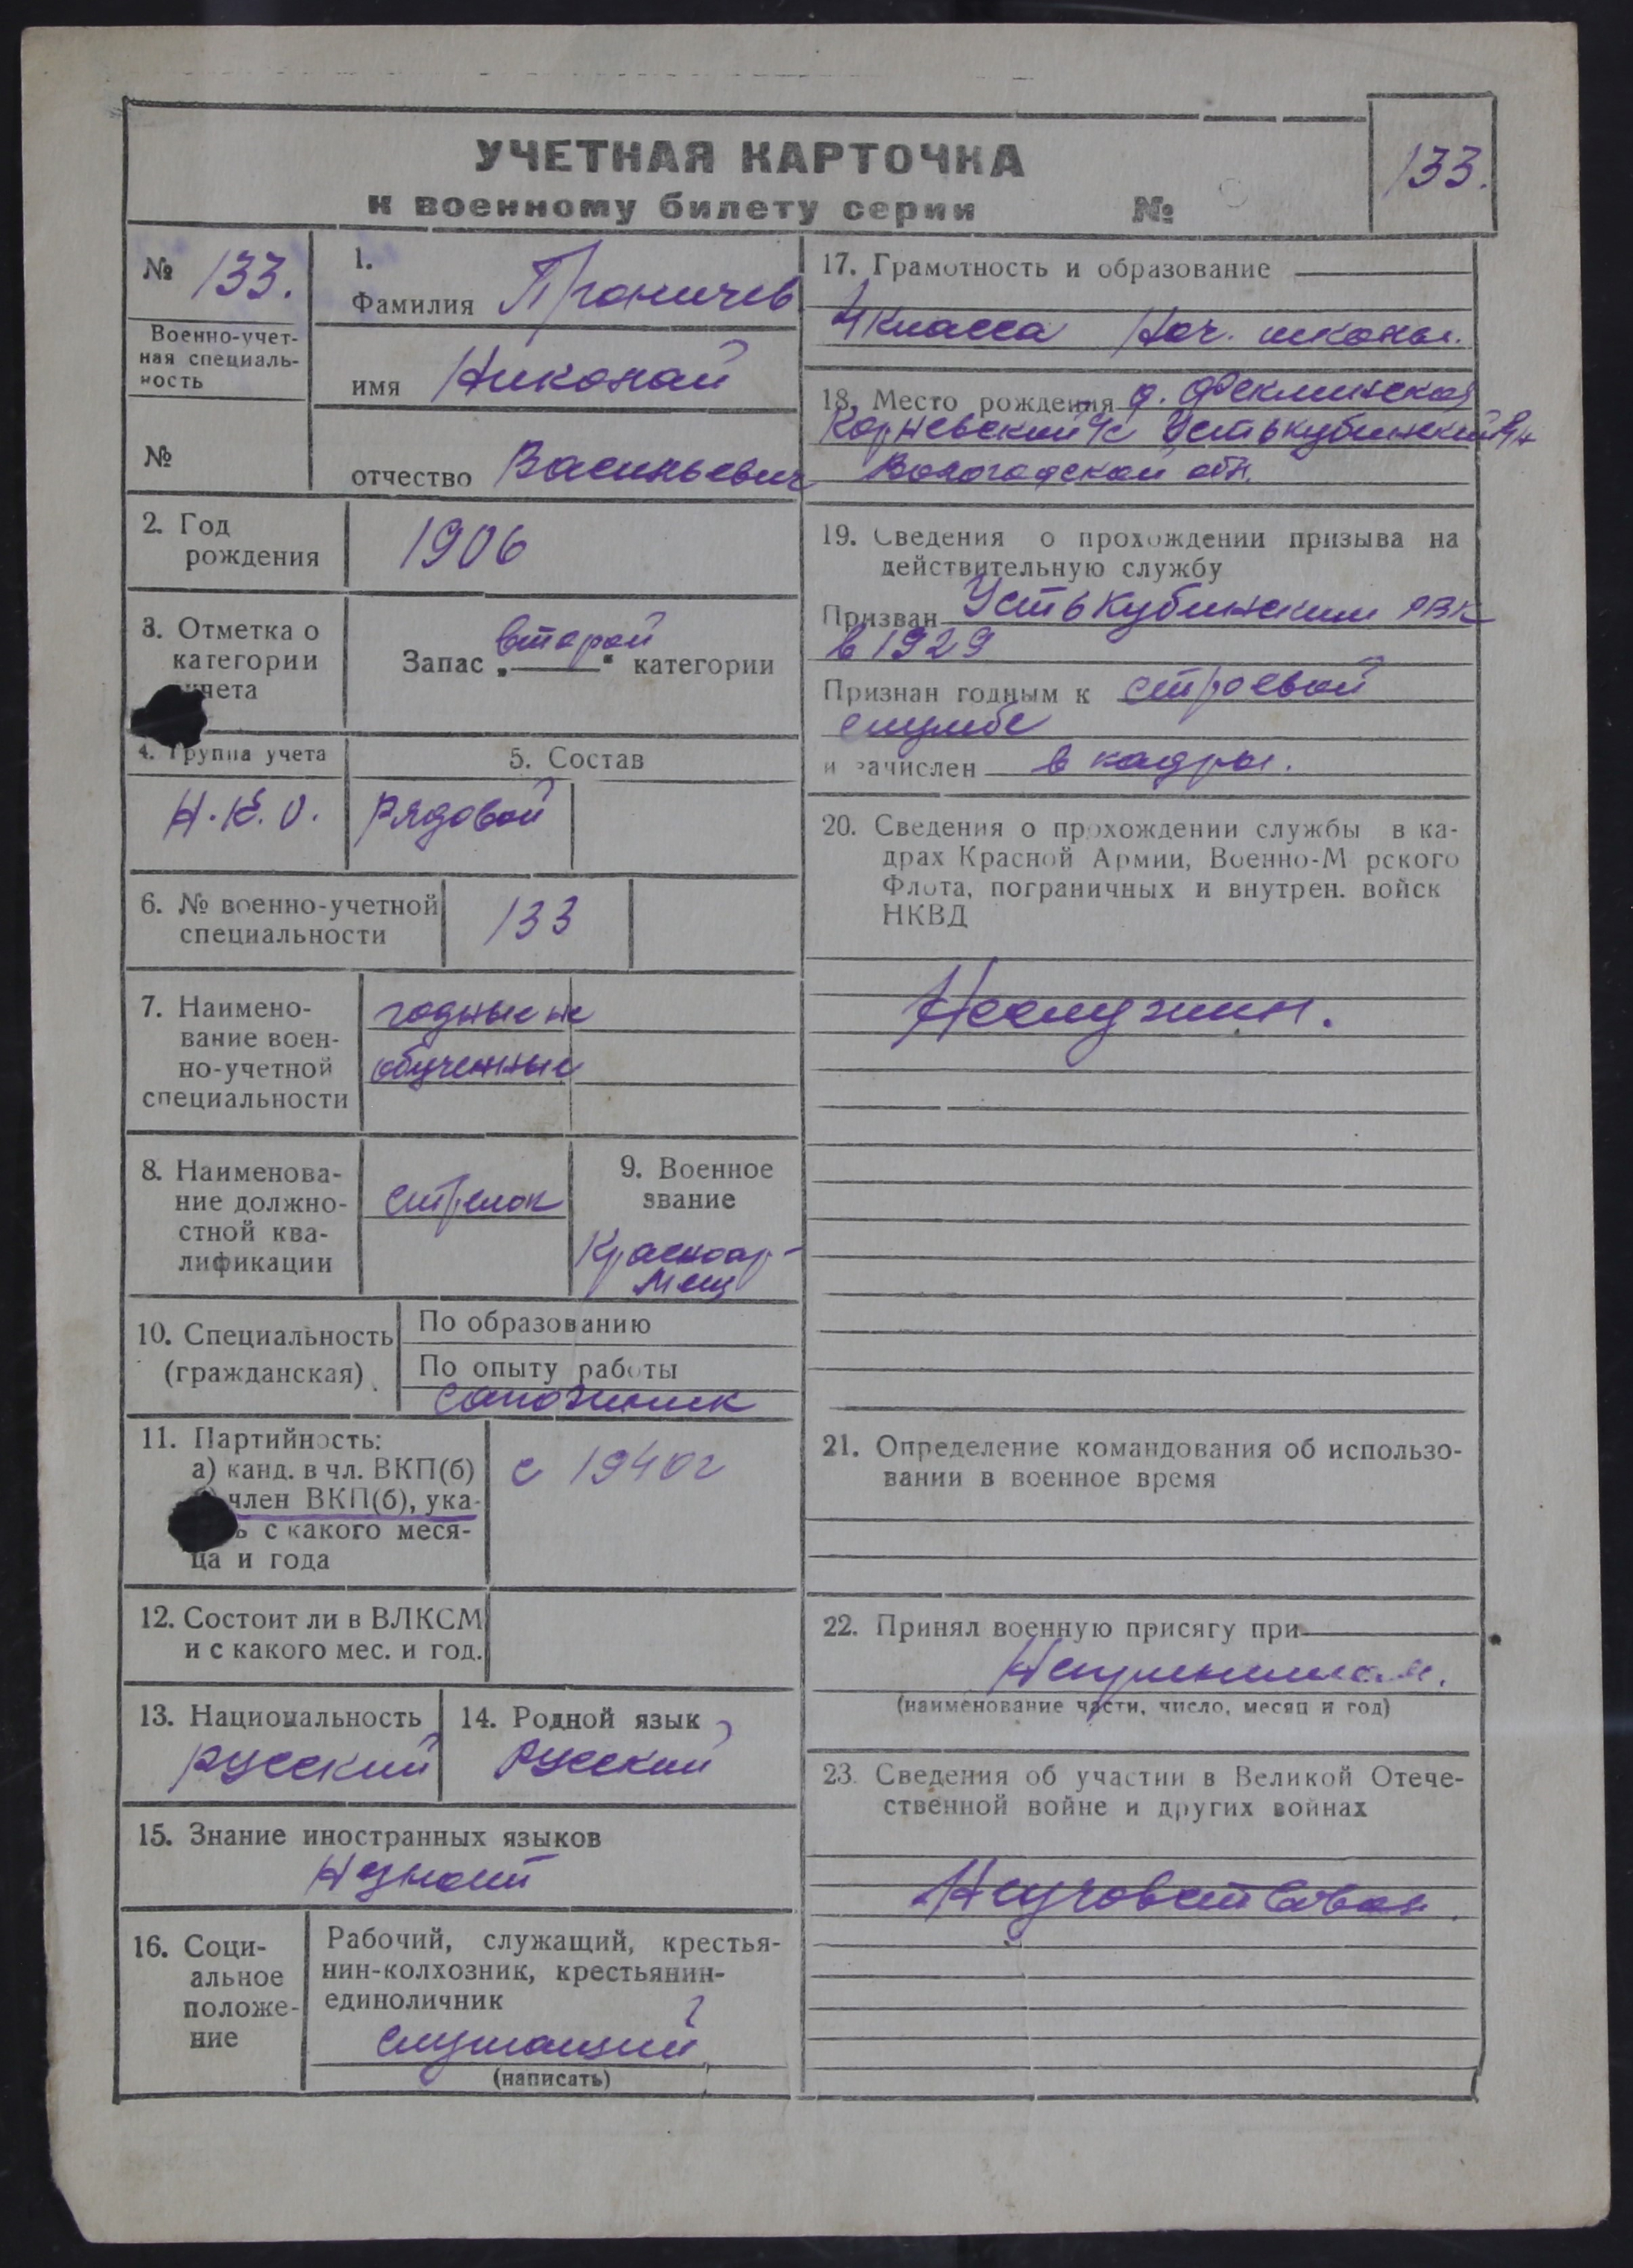 УЧЕТНАЯ КАРТОЧКА
133.
к военному билету серии №
№ 133.
Военно-учет-
ная специаль-
ность
№
1.
Фамилия Проничев
имя Николай
отчество Васильевич
2. Год
рождения
1906
3. Отметка о
категории
учета
Запас „второй“ категории
4. Группа учета
Н.К.О.
5. Состав
рядовой
6. № военно-учетной
специальности
133
7. Наимено-
вание воен-
но-учетной
специальности
годные не
обученные
8. Наименова-
ние должно-
стной ква-
лификации
стрелок
9. Военное
звание
Красноар-
меец
10. Специальность
(гражданская)
По образованию
По опыту работы
сапожник
11. Партийность:
а) канд. в чл. ВКП(б)
член ВКП(б), ука-
ь с какого меся-
ца и года
с 1940г
12. Состоит ли в ВЛКСМ
и с какого мес. и год.
13. Национальность
русский
14. Родной язык
русский
15. Знание иностранных языков
Незнает
16. Соци-
альное
положе-
ние
Рабочий, служащий, крестья-
нин-колхозник, крестьянин-
единоличник
служащий
(написать)
17. Грамотность и образование
4 класса Нач. школы.
18. Место рождения д. Феклинская
Корневский с/с Устькубинский р/н
Вологодской обл.
19. Сведения о прохождении призыва на
действительную службу
Призван Усть Кубинским РВК
в 1929
Признан годным к строевой
службе
и зачислен в кадры.
20. Сведения о прохождении службы в ка-
драх Красной Армии, Военно-М рского
Флота, пограничных и внутрен. войск
НКВД
Неслужил.
21. Определение командования об использо-
вании в военное время
22. Принял военную присягу при
Непринимал.
(наименование части, число, месяц и год)
23. Сведения об участии в Великой Отече-
ственной войне и других войнах
Неучовствовал.